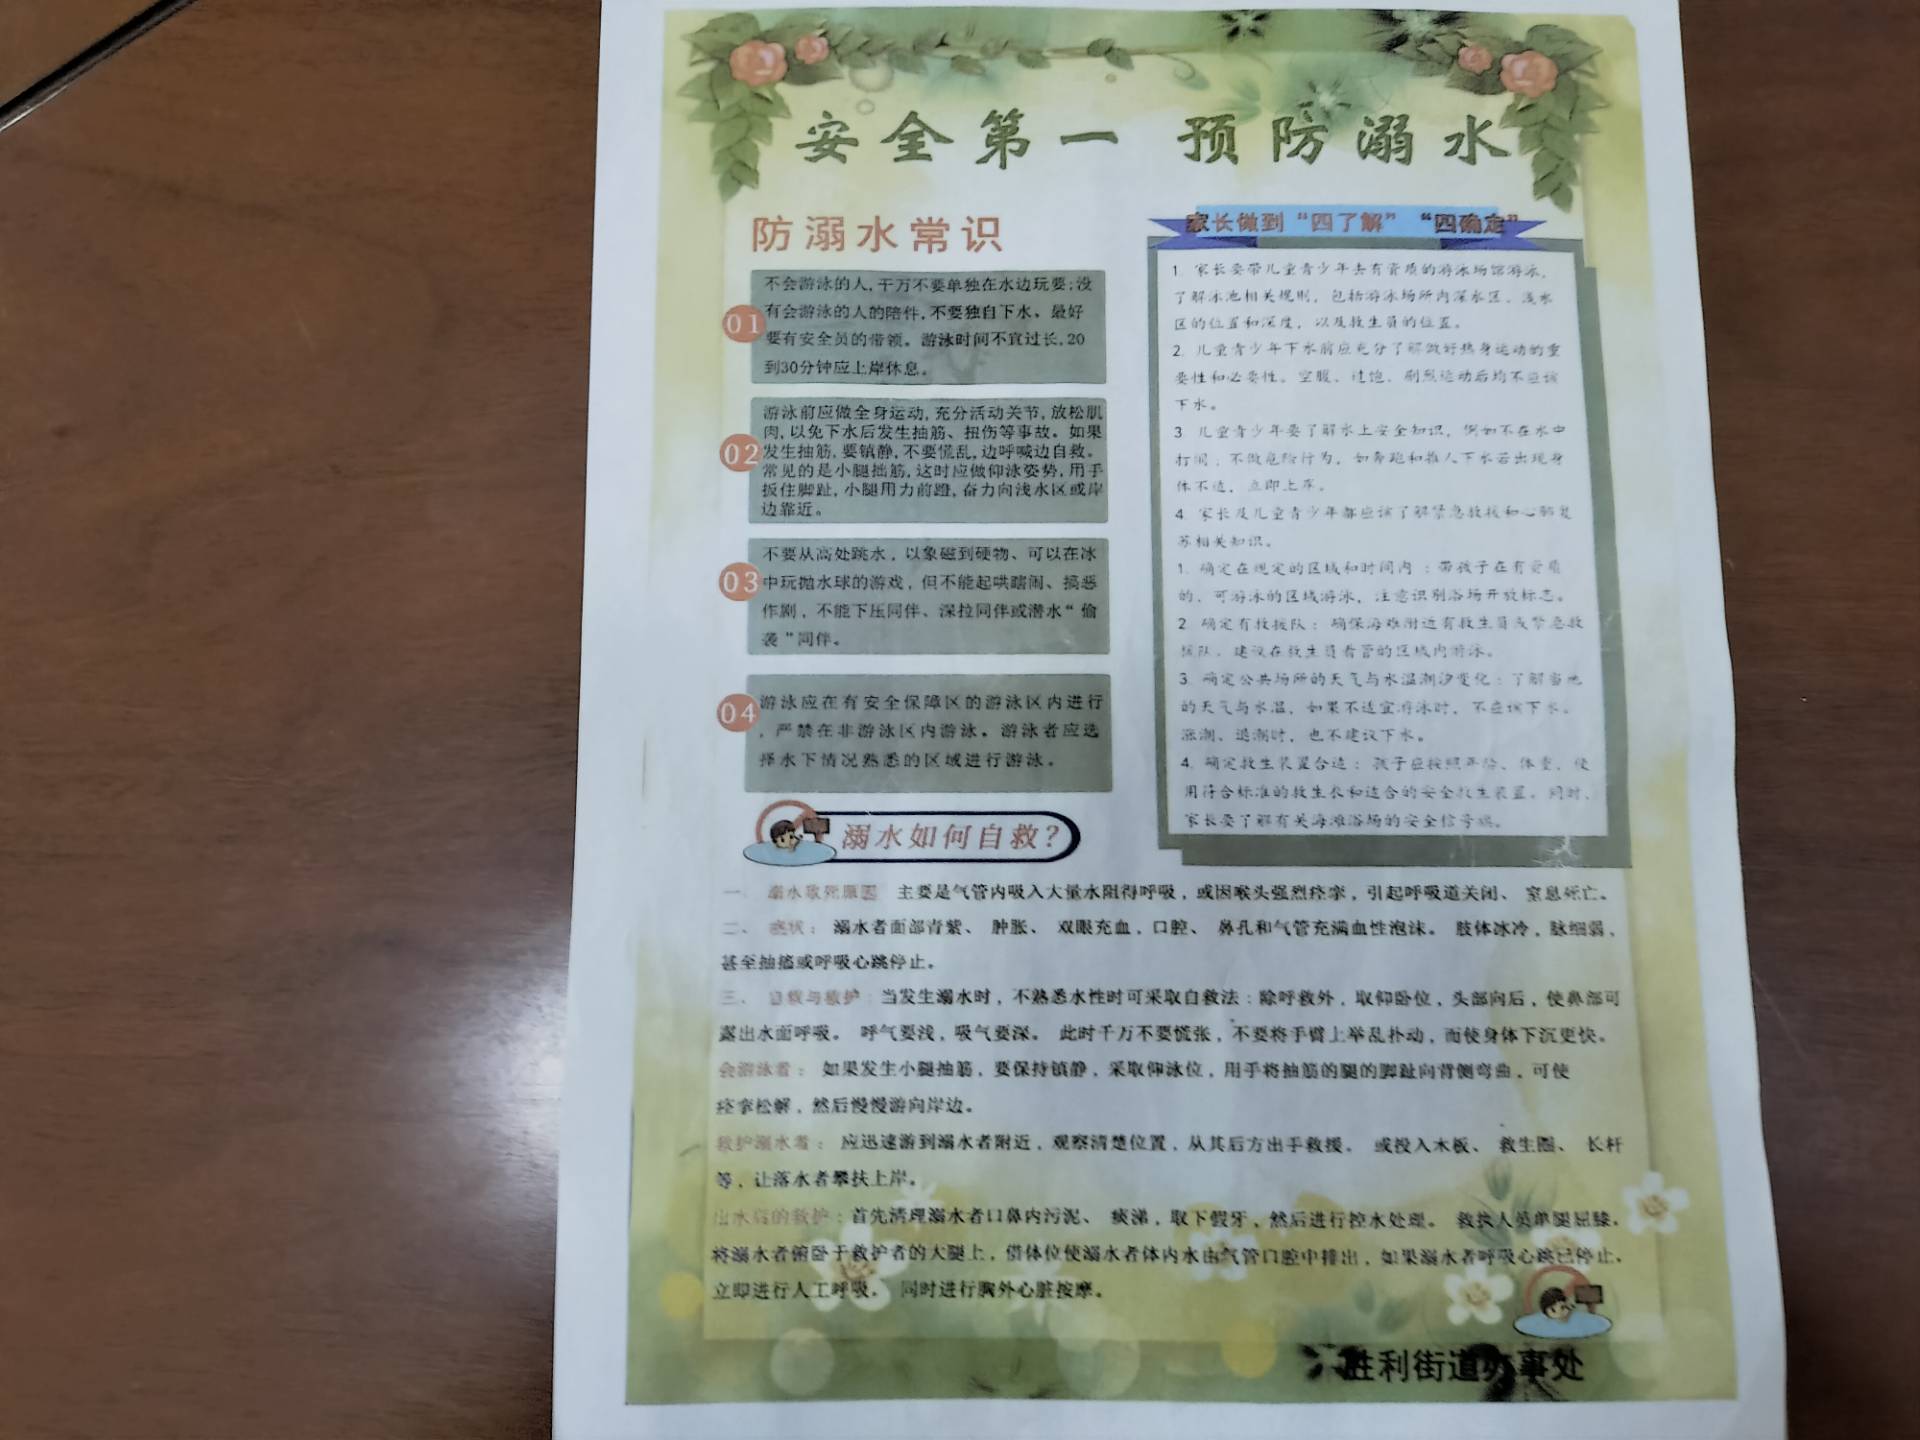 安全第一 预防溺水
防溺水常识
01
不会游泳的人,千万不要单独在水边玩耍;没
有会游泳的人的陪伴,不要独自下水。最好
要有安全员的带领。游泳时间不宜过长,20
到30分钟应上岸休息。
02
游泳前应做全身运动,充分活动关节,放松肌
肉,以免下水后发生抽筋、扭伤等事故。如果
发生抽筋,要镇静,不要慌乱,边呼喊边自救。
常见的是小腿抽筋,这时应做仰泳姿势,用手
扳住脚趾,小腿用力前蹬,奋力向浅水区或岸
边靠近。
03
不要从高处跳水,以象磁到硬物、可以在冰
中玩抛水球的游戏,但不能起哄瞎闹、搞恶
作剧,不能下压同伴、深拉同伴或潜水“偷
袭”同伴。
04
游泳应在有安全保障区的游泳区内进行
,严禁在非游泳区内游泳。游泳者应选
择水下情况熟悉的区域进行游泳。
家长做到“四了解” “四确定”
1. 家长要带儿童青少年去有资质的游泳场馆游泳,
了解泳池相关规则,包括游泳场所内深水区、浅水
区的位置和深度,以及救生员的位置。
2. 儿童青少年下水前应充分了解做好热身运动的重
要性和必要性。空腹、过饱、剧烈运动后均不应该
下水。
3. 儿童青少年要了解水上安全知识,例如不在水中
打闹,不做危险行为,如奔跑和推人下水若出现身
体不适,立即上岸。
4. 家长及儿童青少年都应该了解紧急救援和心肺复
苏相关知识。
1. 确定在规定的区域和时间内:带孩子在有资质
的、可游泳的区域游泳,注意识别浴场开放标志。
2. 确定有救援队:确保海滩附近有救生员或紧急救
援队,建议在救生员看管的区域内游泳。
3. 确定公共场所的天气与水温潮汐变化:了解当地
的天气与水温,如果不适宜游泳时,不应该下水。
涨潮、退潮时,也不建议下水。
4. 确定救生装置合适:孩子应按照年龄、体重,使
用符合标准的救生衣和适合的安全救生装置。同时,
家长要了解有关海滩浴场的安全信号旗。
溺水如何自救?
一、溺水致死原因 主要是气管内吸入大量水阻碍呼吸,或因喉头强烈痉挛,引起呼吸道关闭、窒息死亡。
二、症状:溺水者面部青紫、肿胀、双眼充血,口腔、鼻孔和气管充满血性泡沫。肢体冰冷,脉细弱,
甚至抽搐或呼吸心跳停止。
三、自救与救护:当发生溺水时,不熟悉水性时可采取自救法:除呼救外,取仰卧位,头部向后,使鼻部可
露出水面呼吸。呼气要浅,吸气要深。此时千万不要慌张,不要将手臂上举乱扑动,而使身体下沉更快。
会游泳者:如果发生小腿抽筋,要保持镇静,采取仰泳位,用手将抽筋的腿的脚趾向背侧弯曲,可使
痉挛松解,然后慢慢游向岸边。
救护溺水者:应迅速游到溺水者附近,观察清楚位置,从其后方出手救援。或投入木板、救生圈、长杆
等,让落水者攀扶上岸。
出水后的救护:首先清理溺水者口鼻内污泥、痰涕,取下假牙,然后进行控水处理。救护人员单腿屈膝,
将溺水者俯卧于救护者的大腿上,借体位使溺水者体内水由气管口腔中排出,如果溺水者呼吸心跳已停止,
立即进行人工呼吸。同时进行胸外心脏按摩。
胜利街道办事处